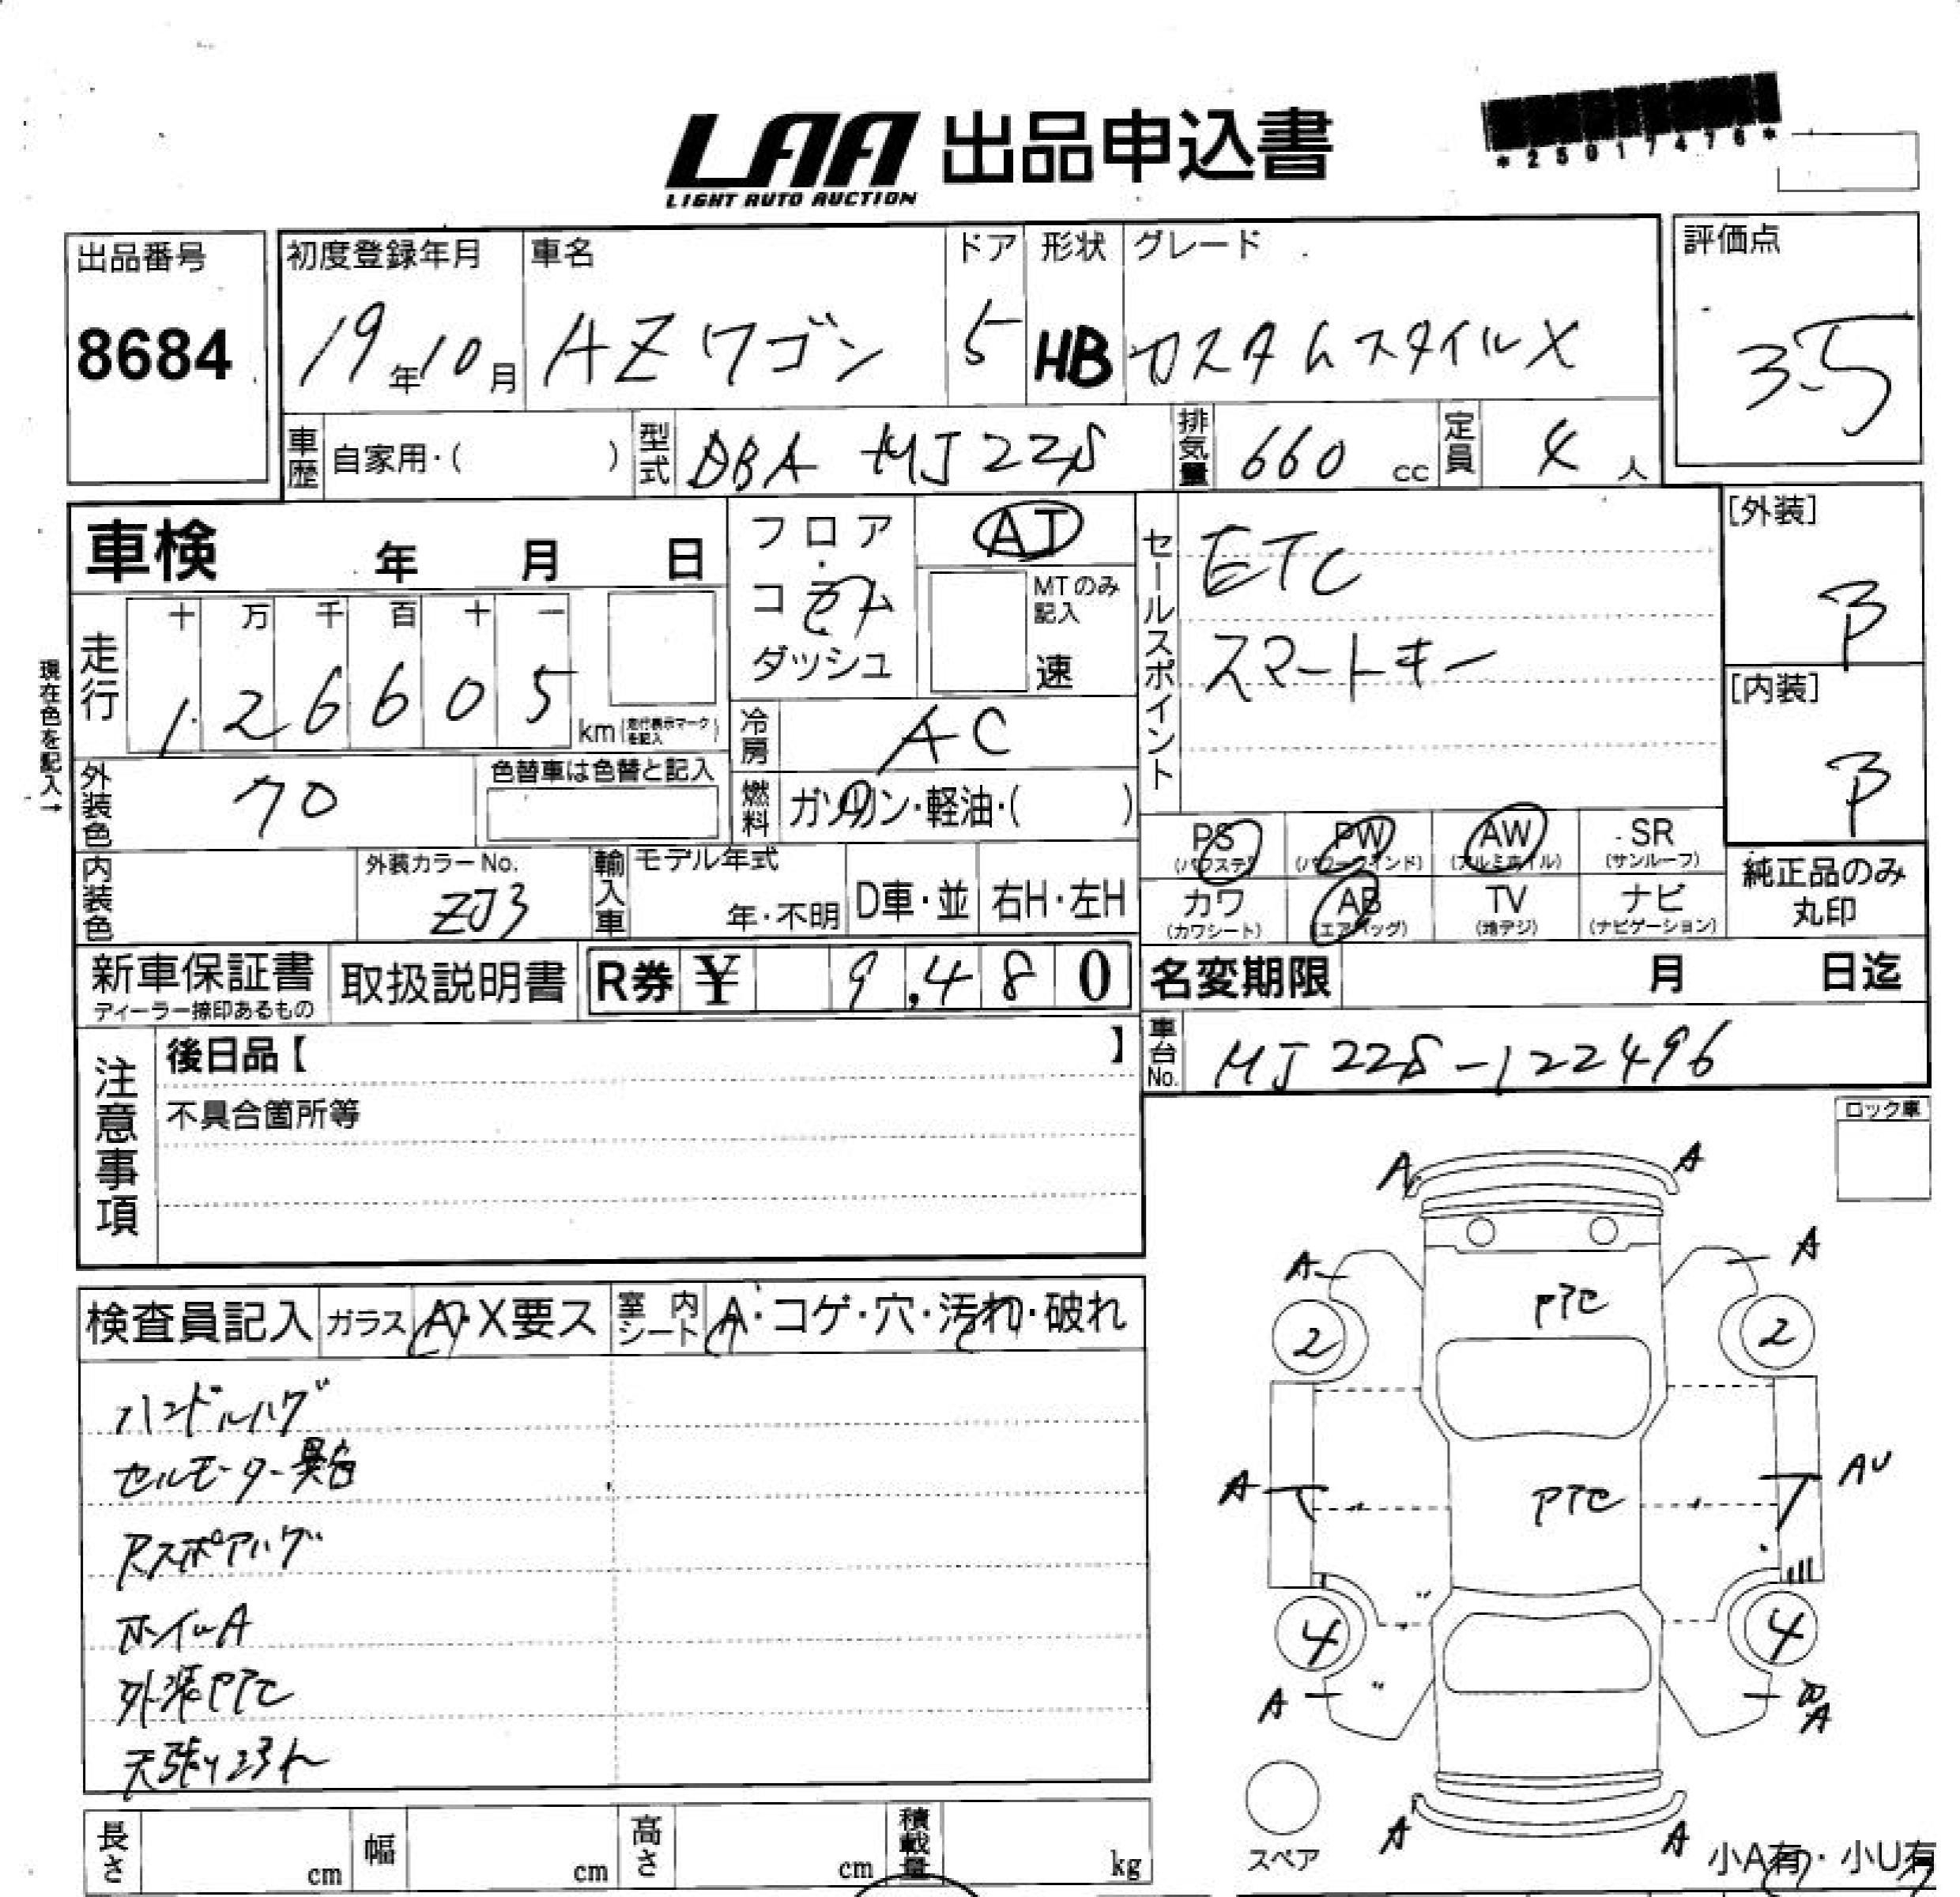 LAA 出品申込書
LIGHT AUTO AUCTION
*25017476*
出品番号
8684
初度登録年月
19年10月
車名
AZワゴン
ドア
5
形状
HB
グレード
カスタムスタイルX
評価点
3.5
車歴 自家用・( )
型式 DBA MJ22S
排気量 660 cc
定員 4 人
車検 年 月 日
現在色を記入→
走行
十 万 千 百 十 一
1 2 6 6 0 5 km (走行表示マークを記入)
フロア・コラム
ダッシュ
AT
MTのみ記入
速
冷房 AC
燃料 ガソリン・軽油・( )
外装色
色替車は色替と記入
内装色
外装カラーNo.
ZJ3
輸入車
モデル年式
年・不明
D車・並
右H・左H
セールスポイント
ETC
スマートキー
[外装]
B
[内装]
B
PS (パワステ)
PW (パワーウインド)
AW (アルミホイル)
SR (サンルーフ)
カワ (カワシート)
AB (エアバッグ)
TV (地デジ)
ナビ (ナビゲーション)
純正品のみ丸印
新車保証書
ディーラー捺印あるもの
取扱説明書
R券 ¥ 9,480
名変期限 月 日迄
車台No. MJ22S-122496
注意事項
後日品【 】
不具合箇所等
ロック車
検査員記入
ガラス A・X要ス
室内シート A・コゲ・穴・汚れ・破れ
ハンドルハゲ
セルモーター異音
Rスポアハゲ
ホイルA
外装PTC
A A
A A
PTC
2 2
A AU
PTC
4 4
A
A
A A
スペア
小A有・小U有
長さ cm
幅 cm
高さ cm
積載量 kg